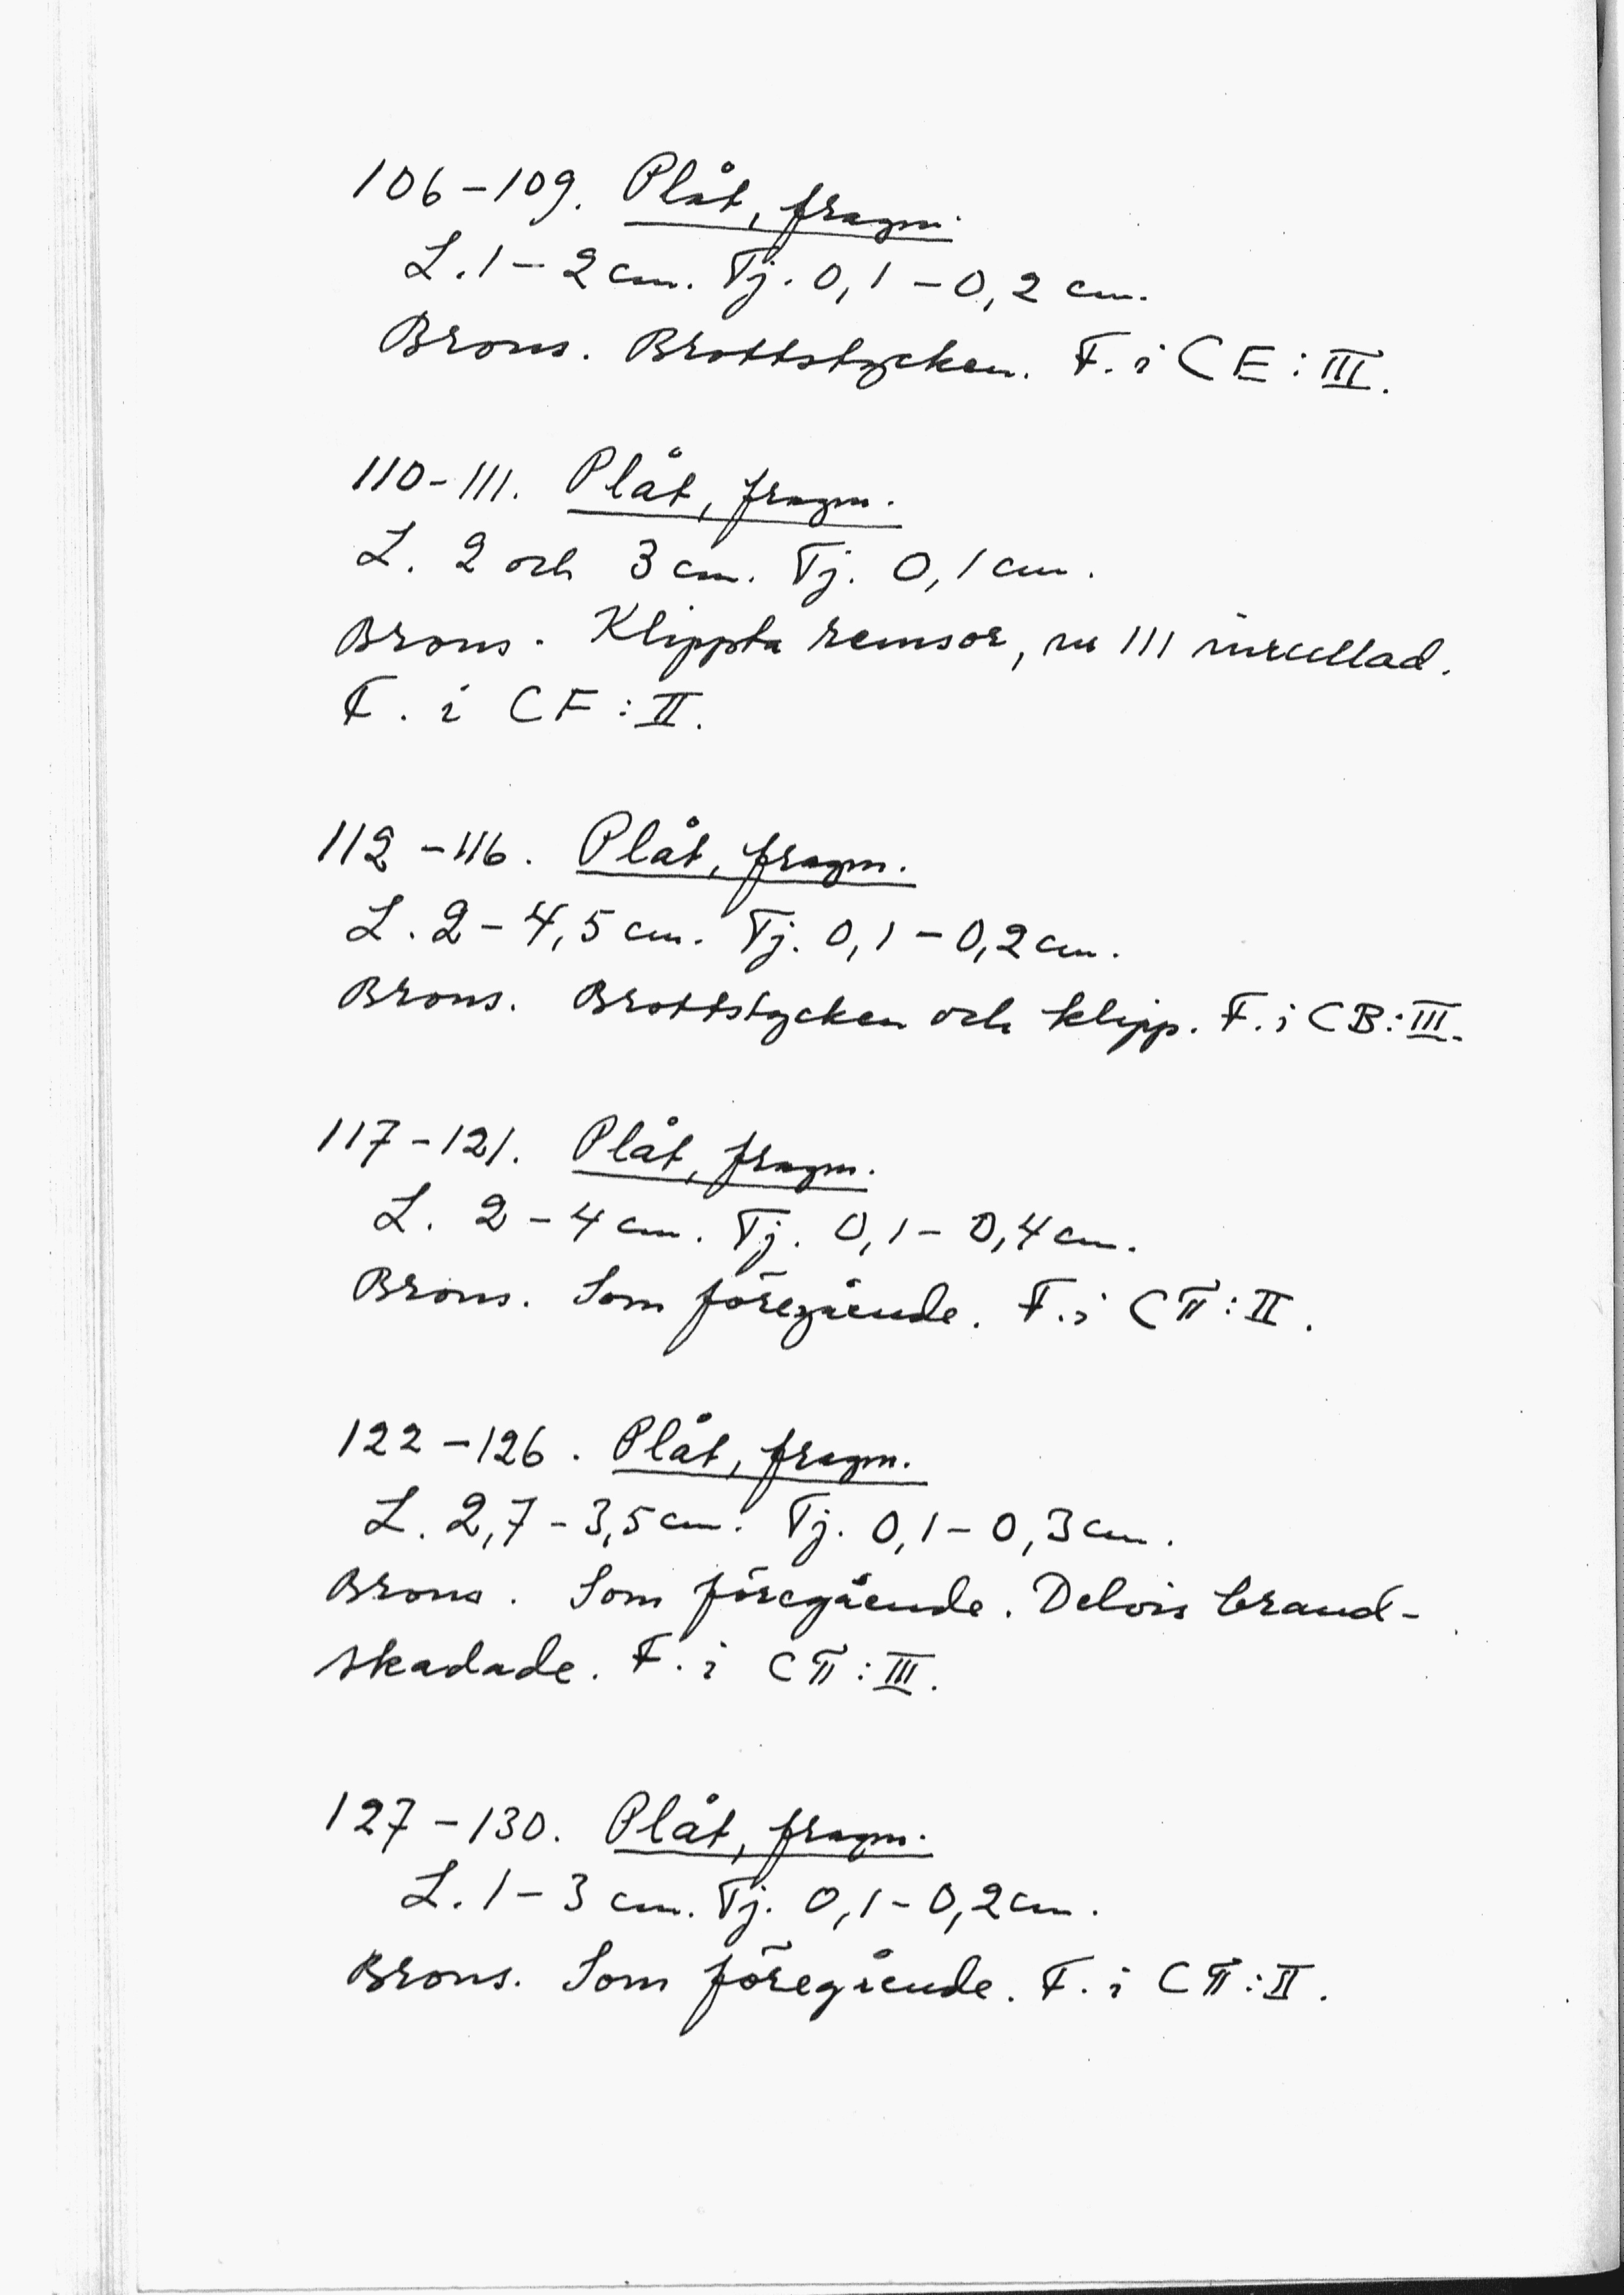 106-109. Plåt, fragm.
L. 1-2 cm. Tj. 0,1-0,2 cm.
Brons. Brottstycken. F. i CE:III.
110-111. Plåt, fragm.
L. 2 och 3 cm. Tj. 0,1 cm.
Brons. Klippta remsor, nr 111 inrullad.
F. i CF:II.
112-116. Plåt, fragm.
L. 2-4,5 cm. Tj. 0,1-0,2 cm.
Brons. Brottstycken och klipp. F. i CB:III.
117-121. Plåt, fragm.
L. 2-4 cm. Tj. 0,1-0,4 cm.
Brons. Som föregående. F. i Cπ:II.
122-126. Plåt, fragm.
L. 2,7-3,5 cm. Tj. 0,1-0,3 cm.
Brons. Som föregående. Delvis brand-
skadade. F. i Cπ:III.
127-130. Plåt, fragm.
L. 1-3 cm. Tj. 0,1-0,2 cm.
Brons. Som föregående. F. i Cπ:II.